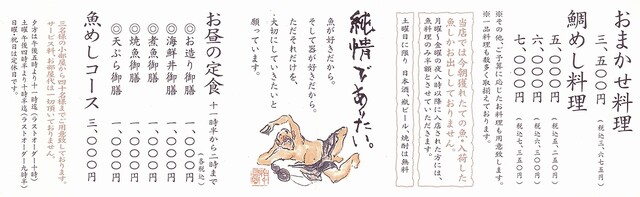 おまかせ料理
三、五〇〇円（税込三、六七五円）
鯛めし料理
五、〇〇〇円（税込五、二五〇円）
六、〇〇〇円（税込六、三〇〇円）
七、〇〇〇円（税込七、三五〇円）
※その他、ご予算に応じたお料理も用意致します。
※一品料理も数多く取揃えております。
当店では今朝獲れたての魚、入荷した
魚しかお出ししておりません。
月曜～金曜の夜八時以降に入店された方には、
魚料理のみ半額とさせていただきます。
土曜日に限り 日本酒、瓶ビール、焼酎は無料
純情でありたい。
魚が好きだから。
そして器が好きだから。
ただそれだけを、
大切にしていきたいと
願っています。
お昼の定食 十一時半から二時まで
（各税込）
◎お造り御膳 一、〇〇〇円
◎海鮮丼御膳 一、〇〇〇円
◎煮魚御膳 一、〇〇〇円
◎焼魚御膳 一、〇〇〇円
◎天ぷら御膳 一、〇〇〇円
魚めしコース 三、〇〇〇円
三名様の小部屋から四十名様までご用意致しております。
サービス料、お部屋代は一切頂いておりません。
夕方は午後五時より十一時迄（ラストオーダー十時）
土曜 午後四時半より十時半迄（ラストオーダー九時半）
日曜・祝日は定休日です。